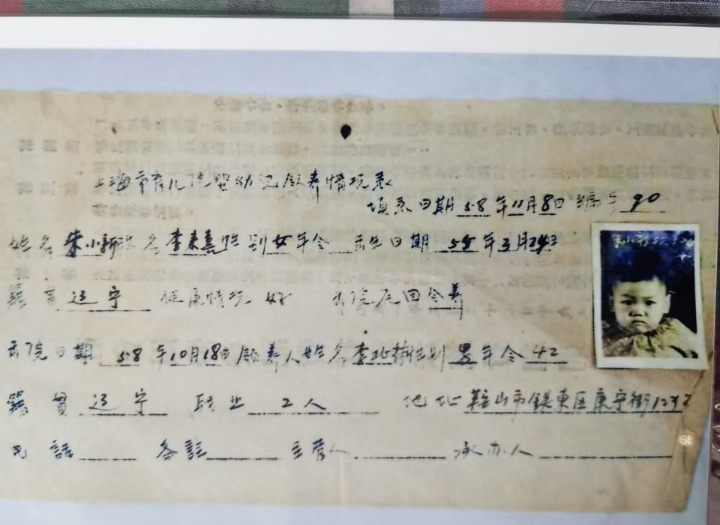 上海市育儿院婴幼儿领养情况表
填表日期 58年11月8日 编号 90
姓名 朱小新 改名 李素 性别 女 年令 出生日期 年3月24日
籍贯 辽宁 健康情况 好 出院原因 领养
出院日期 58年10月18日 领养人姓名 李 性别 男 年令 42
籍贯 辽宁 职业 工人 地址 鞍山市铁东区康宁街
电话 备註 主管人 承办人